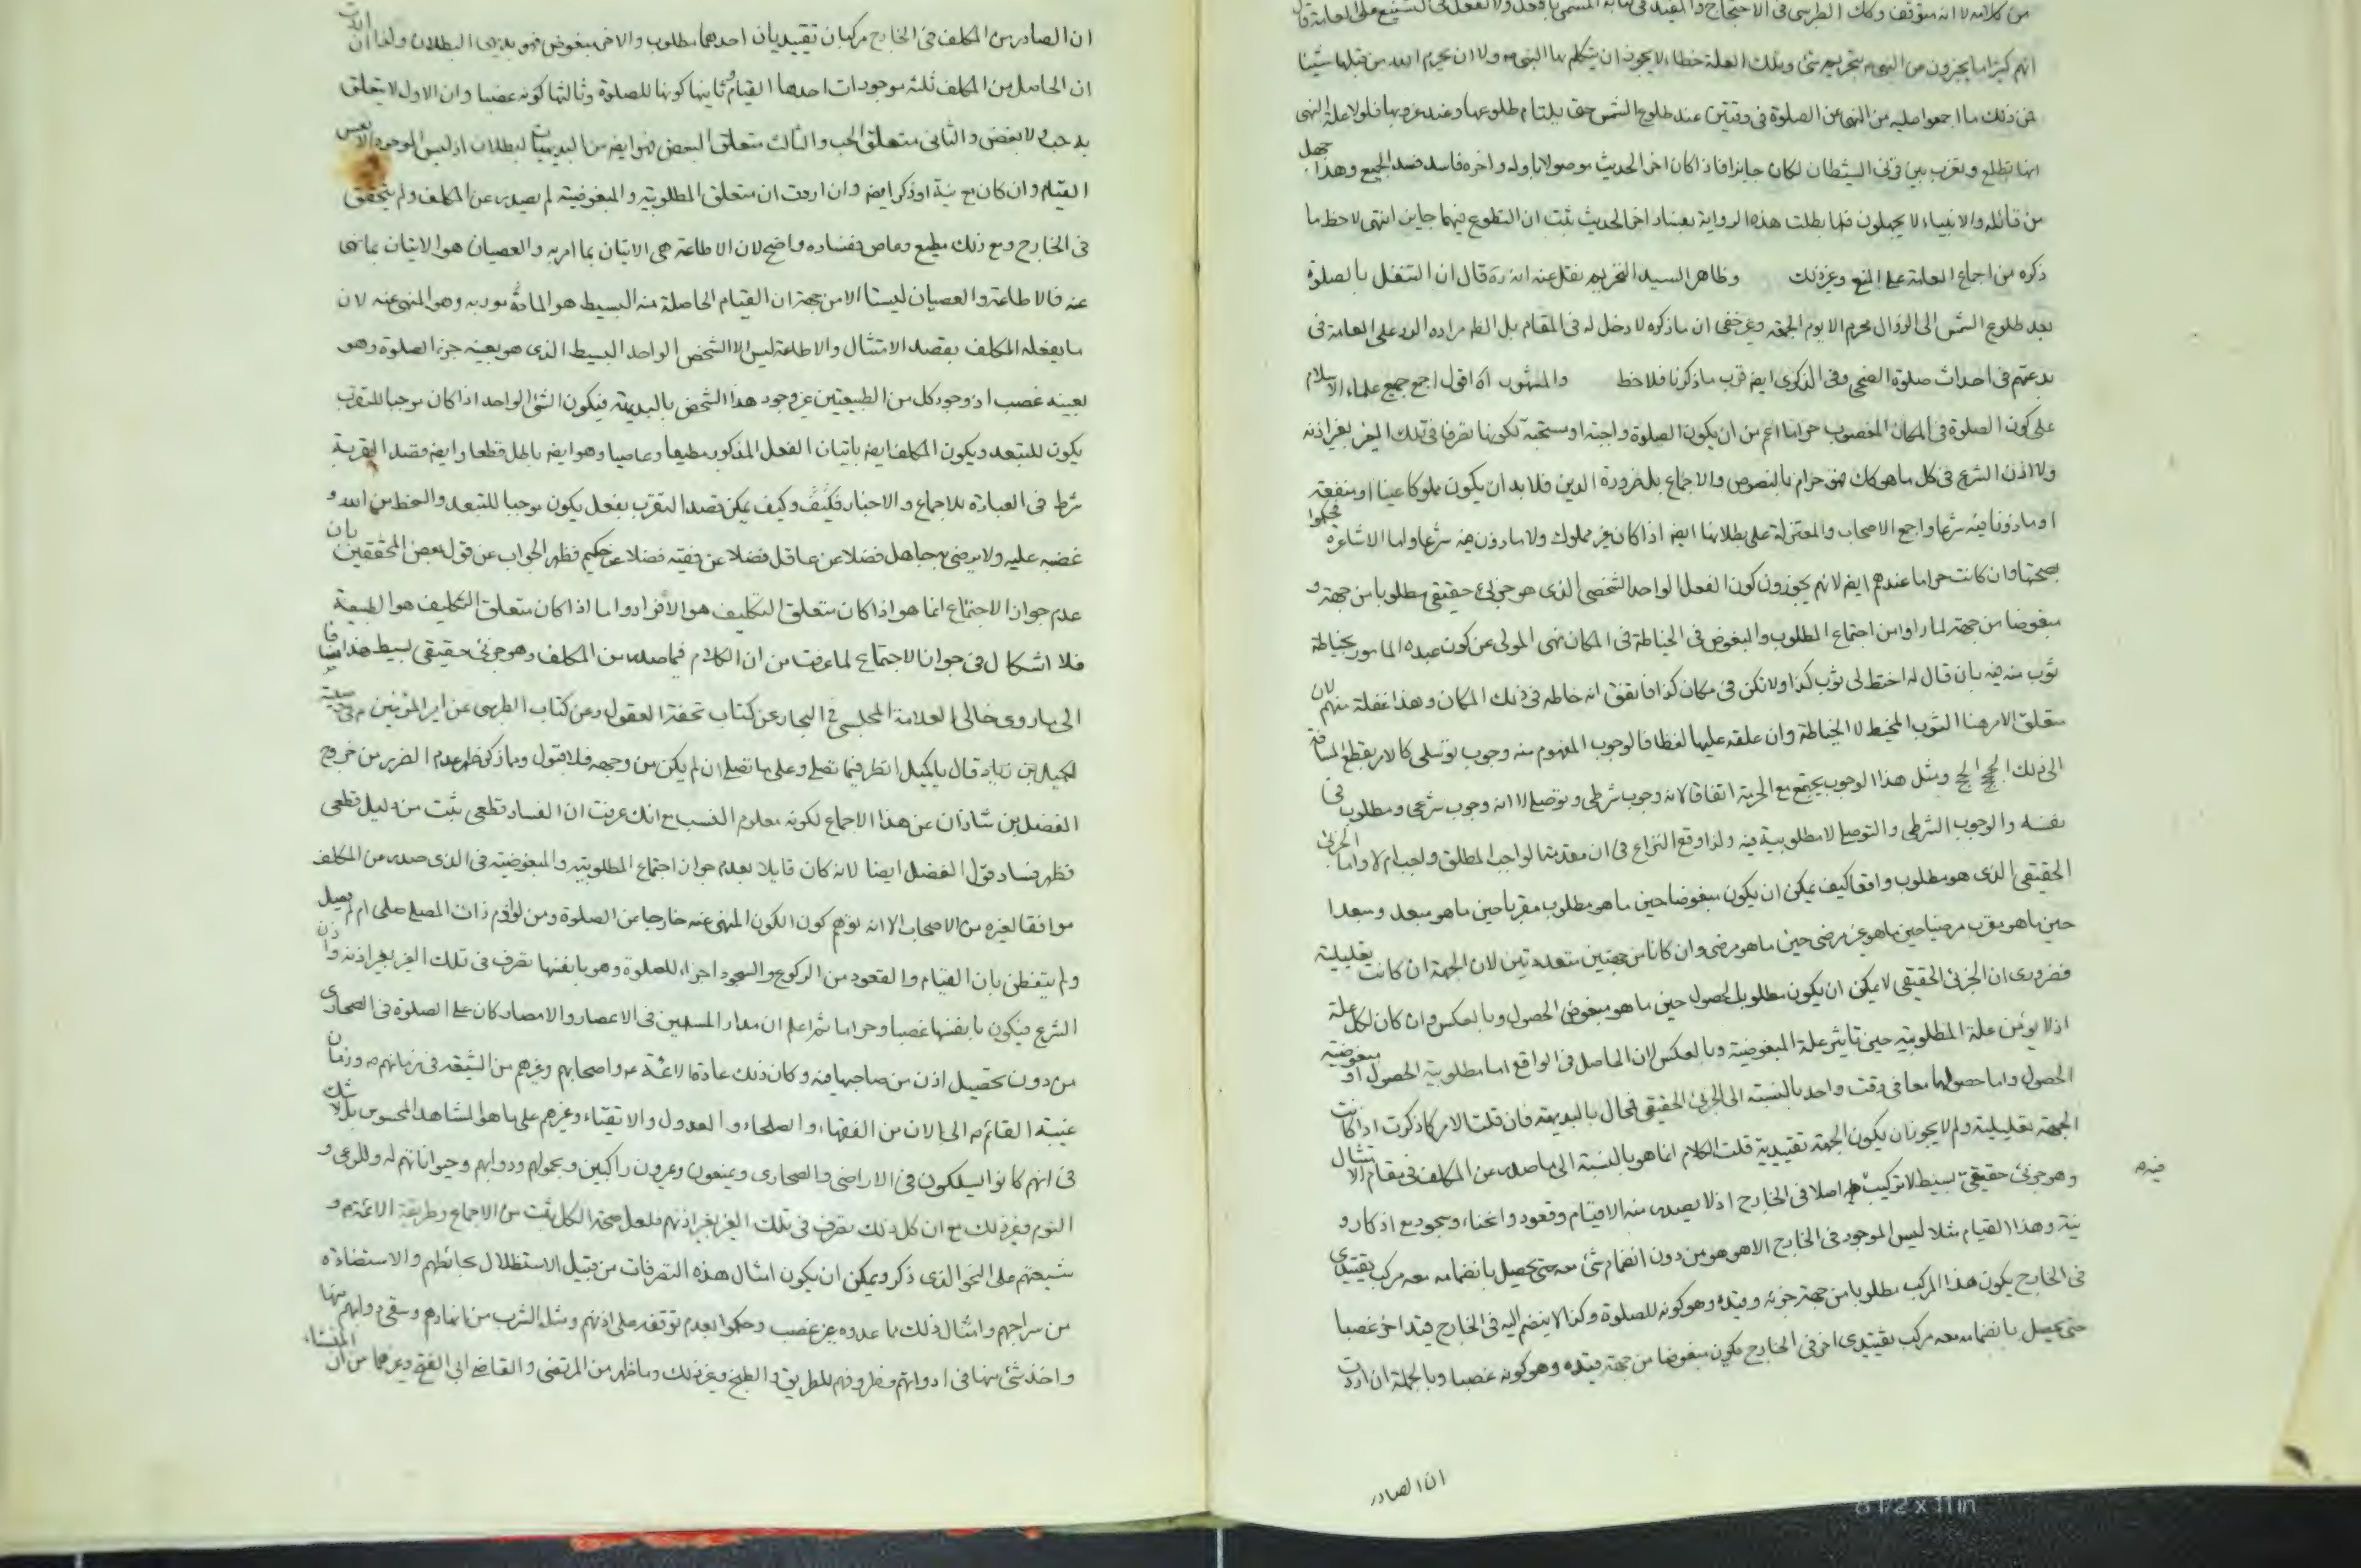 من كلامه لا انه متوقف وكك الطبرسى فى الاحتجاج والمفيد فى كتابه المسمى
انهم كثيرا ما يخبرون عن النبى ص بتحريم شئ وبتلك العلة خطاء لا يجوز ان يتكلم بها النبى ص ولا ان يحرم الله من قبلها شيئا
من ذلك ما اجمعوا عليه من النهى عن الصلوة فى وقتين عند طلوع الشمس حتى يلتام طلوعها وعند غروبها فلولا علة النهى
انها تطلع وتغرب بين قرنى الشيطان لكان جايزا فاذا كان اخر الحديث موصولا باوله واخره فاسد فسد الجميع وهذا جهل
من قائله والانبياء لا يجهلون فلما بطلت هذه الرواية بفساد اخر الحديث ثبت ان التطوع فيهما جايز انتهى لاحظ ما
ذكره من اجماع العامة على المنع وغير ذلك وظاهر السيد التحريم نقل عنه انه ره قال ان التنفل بالصلوة
بعد طلوع الشمس الى الزوال محرم الا يوم الجمعة وغير خفى ان ما ذكره لا دخل له فى المقام بل الظ مراده الرد على العامة فى
بدعتهم فى احداث صلوة الضحى وفى الذكرى ايضه قرب ما ذكرنا فلاحظ والمشهور اه اقول اجمع جميع علماء الاسلام
على كون الصلوة فى المكان المغصوب حراما اعم من ان يكون الصلوة واجبة او مستحبة لكونها تصرفا فى تلك الغير بغير اذنه
ولا اذن الشرع فى كل ما هو كك فهو حرام بالنصوص والاجماع بل ضرورة الدين فلا بد ان يكون مملوكا عينا او منفعة
او ماذونا فيه شرعا واجمع الاصحاب والمعتزلة على بطلانها ايضه اذا كان غير مملوك ولا ماذون فيه شرعا واما الاشاعرة فحكموا
بصحتها وان كانت حراما عندهم ايضه لانهم يجوزون كون الفعل الواحد الشخصى الذى هو جزئى حقيقى مطلوبا من جهة و
مبغوضا من جهة لما راوا من اجتماع المطلوب والمبغوض فى الخياطة فى المكان نهى المولى عن كون عبده المامور بخياطة
ثوب منه فيه بان قال له اختط لى ثوب كذا ولا تكن فى مكان كذا فاتفق انه خاطه فى ذلك المكان وهذا غفلة منهم لان
متعلق الامر هنا الثوب المخيط لا الخياطة وان علقه عليها لفظا فالوجوب المفهوم منه وجوب توسلى كالامر بقطع المسافة
الى ذلك الحج الحج ومثل هذا الوجوب يجتمع مع الحرمة اتفاقا لانه وجوب شرطى وتوصلى لا انه وجوب شرعى ومطلوب فى
نفسه والوجوب الشرطى والتوصلى لا مطلوبية فيه ولذا وقع النزاع فى ان مقدمة الواجب المطلق واجب ام لا واما الجزئى
الحقيقى الذى هو مطلوب واقعا كيف يمكن ان يكون مبغوضا حين ما هو مطلوب مقربا حين ما هو مبعد ومبعدا
حين ما هو مقرب مرضيا حين ما هو غير مرضى حين ما هو مرضى وان كانا من جهتين متعددتين لان الجهة ان كانت تعليلية
فضرورى ان الجزئى الحقيقى لا يمكن ان يكون مطلوب الحصول حين ما هو مبغوض الحصول وبالعكس وان كان لكل علة
اذ لا يؤثر علة المطلوبية حين تاثير علة المبغوضية وبالعكس لان الحاصل فى الواقع اما مطلوبية الحصول او مبغوضية
الحصول واما حصولهما معا فى وقت واحد بالنسبة الى الجزئى الحقيقى فمحال بالبديهة فان قلت الامر كما ذكرت اذا كانت
الجهة تعليلية ولم لا يجوز ان يكون الجهة تقييدية قلت الكلام انما هو بالنسبة الى ما صدر عن المكلف فى مقام الامتثال
وهو جزئى حقيقى بسيط لا تركيب فيه اصلا فى الخارج اذ لا يصدر منه الا قيام وقعود وانحناء وسجود مع اذكار و
نية وهذا القيام مثلا ليس الموجود فى الخارج الا هو هو من دون انضمام شئ معه حتى يحصل بانضمامه معه مركب تقييدى
فى الخارج يكون هذا المركب مطلوبا من جهة جزئه وقيده وهو كونه للصلوة وكذا لا ينضم اليه فى الخارج قيد اخر غصبا
حتى يحصل بانضمامه معه مركب تقييدى اخر فى الخارج يكون مبغوضا من جهة قيده وهو كونه غصبا وبالجملة ان اردت
ان الصادر
ان الصادر من المكلف فى الخارج مركبان تقييديان احدهما مطلوب والاخر مبغوض فهو بديهى البطلان وان اردت
ان الحاصل من المكلف ثلثه موجودات احدها القيام وثانيها كونها للصلوة وثالثها كونه غصبا وان الاول لا يتعلق
به حب ولا بغض والثانى متعلق الحب والثالث متعلق البغض فهو ايضه من البديهيات البطلان اذ ليس الموجود الا نفس
القيام وان كان مع نية او ذكر ايضه وان اردت ان متعلق المطلوبية والمبغوضية لم يصدر عن المكلف ولم يتحقق
فى الخارج ومع ذلك مطيع وعاص ففساده واضح لان الاطاعة هى الاتيان بما امر به والعصيان هو الاتيان بما نهى
عنه فالاطاعة والعصيان ليستا الا من جهة ان القيام الحاصلة منه البسيط هو المامور به وهو المنهى عنه لان
ما يفعله المكلف بقصد الامتثال والاطاعة ليس الا الشخص الواحد البسيط الذى هو بعينه جزء الصلوة وهو
بعينه غصب اذ وجود كل من الطبيعتين عين وجود هذا الشخص بالبديهة فيكون الشئ الواحد اذا كان موجبا للتقرب
يكون للتبعد ويكون المكلف ايضه باتيان الفعل المذكور مطيعا وعاصيا وهو ايضه باطل قطعا وايضه قصد القربة
شرط فى العبادة بالاجماع والاخبار فكيف وكيف يمكن قصد التقرب بفعل يكون موجبا للتبعد والسخط من الله و
غضبه عليه ولا يرضى به جاهل فضلا عن عاقل فضلا عن فقيه فضلا عن حكيم فظهر الجواب عن قول بعض المحققين بان
عدم جواز الاجتماع انما هو اذا كان متعلق التكليف هو الافراد واما اذا كان متعلق التكليف هو الطبيعة
فلا اشكال فى جواز الاجتماع لما عرفت من ان الكلام فيما صدر من المكلف وهو جزئى حقيقى بسيط هذا مضافا
الى ما روى خالى العلامة المجلسى فى البحار عن كتاب تحفة العقول وعن كتاب الطبرسى عن امير المؤمنين ع فى وصية
لكميل بن زياد قال يا كميل انظر فيما تصلى وعلى ما تصلى ان لم يكن من وجهه فلا قبول ومما ذكر ظهر عدم الضرر من خروج
الفضل بن شاذان عن هذا الاجماع لكونه معلوم النسب مع انك عرفت ان الفساد قطعى يثبت من دليل قطعى
فظهر فساد قول الفضل ايضا لانه كان قايلا بعدم جواز اجتماع المطلوبية والمبغوضية فى الذى صدر من المكلف
موافقا لغيره من الاصحاب الا انه توهم كون الكون المنهى عنه خارجا عن الصلوة ومن لوازم ذات المصلى صلى ام لم يصل
ولم يتفطن بان القيام والقعود من الركوع والسجود اجزاء للصلوة وهو بانفسها تصرف فى تلك الغير بغير اذنه واذن
الشرع فيكون بانفسها غصبا وحراما ثم اعلم ان مدار المسلمين فى الاعصار والامصار كان على الصلوة فى الصحارى
من دون تحصيل اذن من صاحبها فيه وكان ذلك عادة الائمة ع واصحابهم وغيرهم من الشيعة فى زمانهم ع وزمان
غيبة القائم ع الى الان من الفقهاء والصلحاء والعدول والاتقياء وغيرهم على ما هو المشاهد المحسوس بلا شك
فى انهم كانوا يسلكون فى الاراضى والصحارى ويمشون ويمرون راكبين وبحمولهم ودوابهم وحيواناتهم له وللرعى و
النوم وغير ذلك مع ان كل ذلك تصرف فى تلك الغير بغير اذنهم فلعل صحة الكل يثبت من الاجماع وطريقة الائمة ع و
شيعتهم على النحو الذى ذكر ويمكن ان يكون امثال هذه التصرفات من قبيل الاستظلال بحائطهم والاستضاءة
من سراجهم وامثال ذلك مما عدوه غير غصب وحكموا بعدم توقفه على اذنهم ومثل الشرب من انهارهم وسقى دوابهم منها
واخذ شئ منها فى ادواتهم وظروفهم للطريق والطبخ وغير ذلك وما ظهر من المرتضى والقاضى ابى الفتح وغيرهما من ان المنشاء